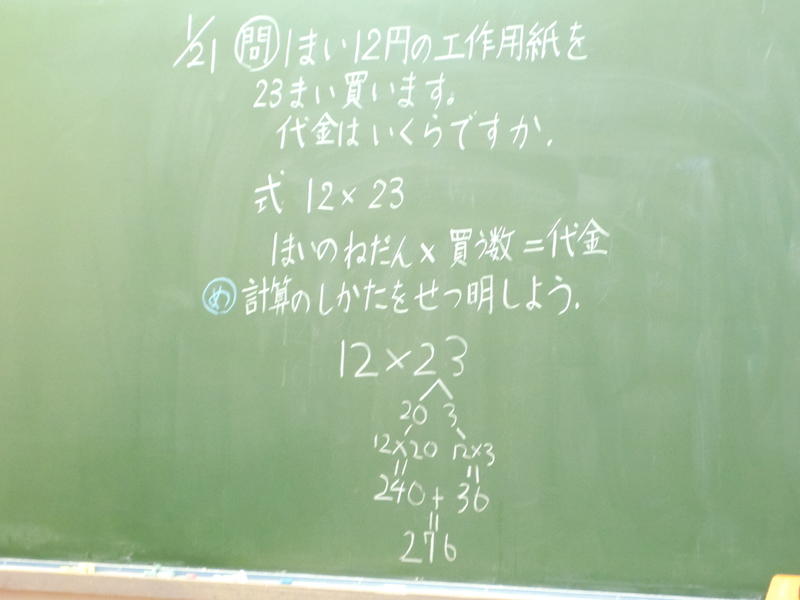 1/21 問 1まい12円の工作用紙を
23まい買います。
代金はいくらですか.
式 12×23
1まいのねだん×買う数=代金
め 計算のしかたをせつ明しよう.
12×23
20 3
12×20 12×3
= =
240+36
=
276